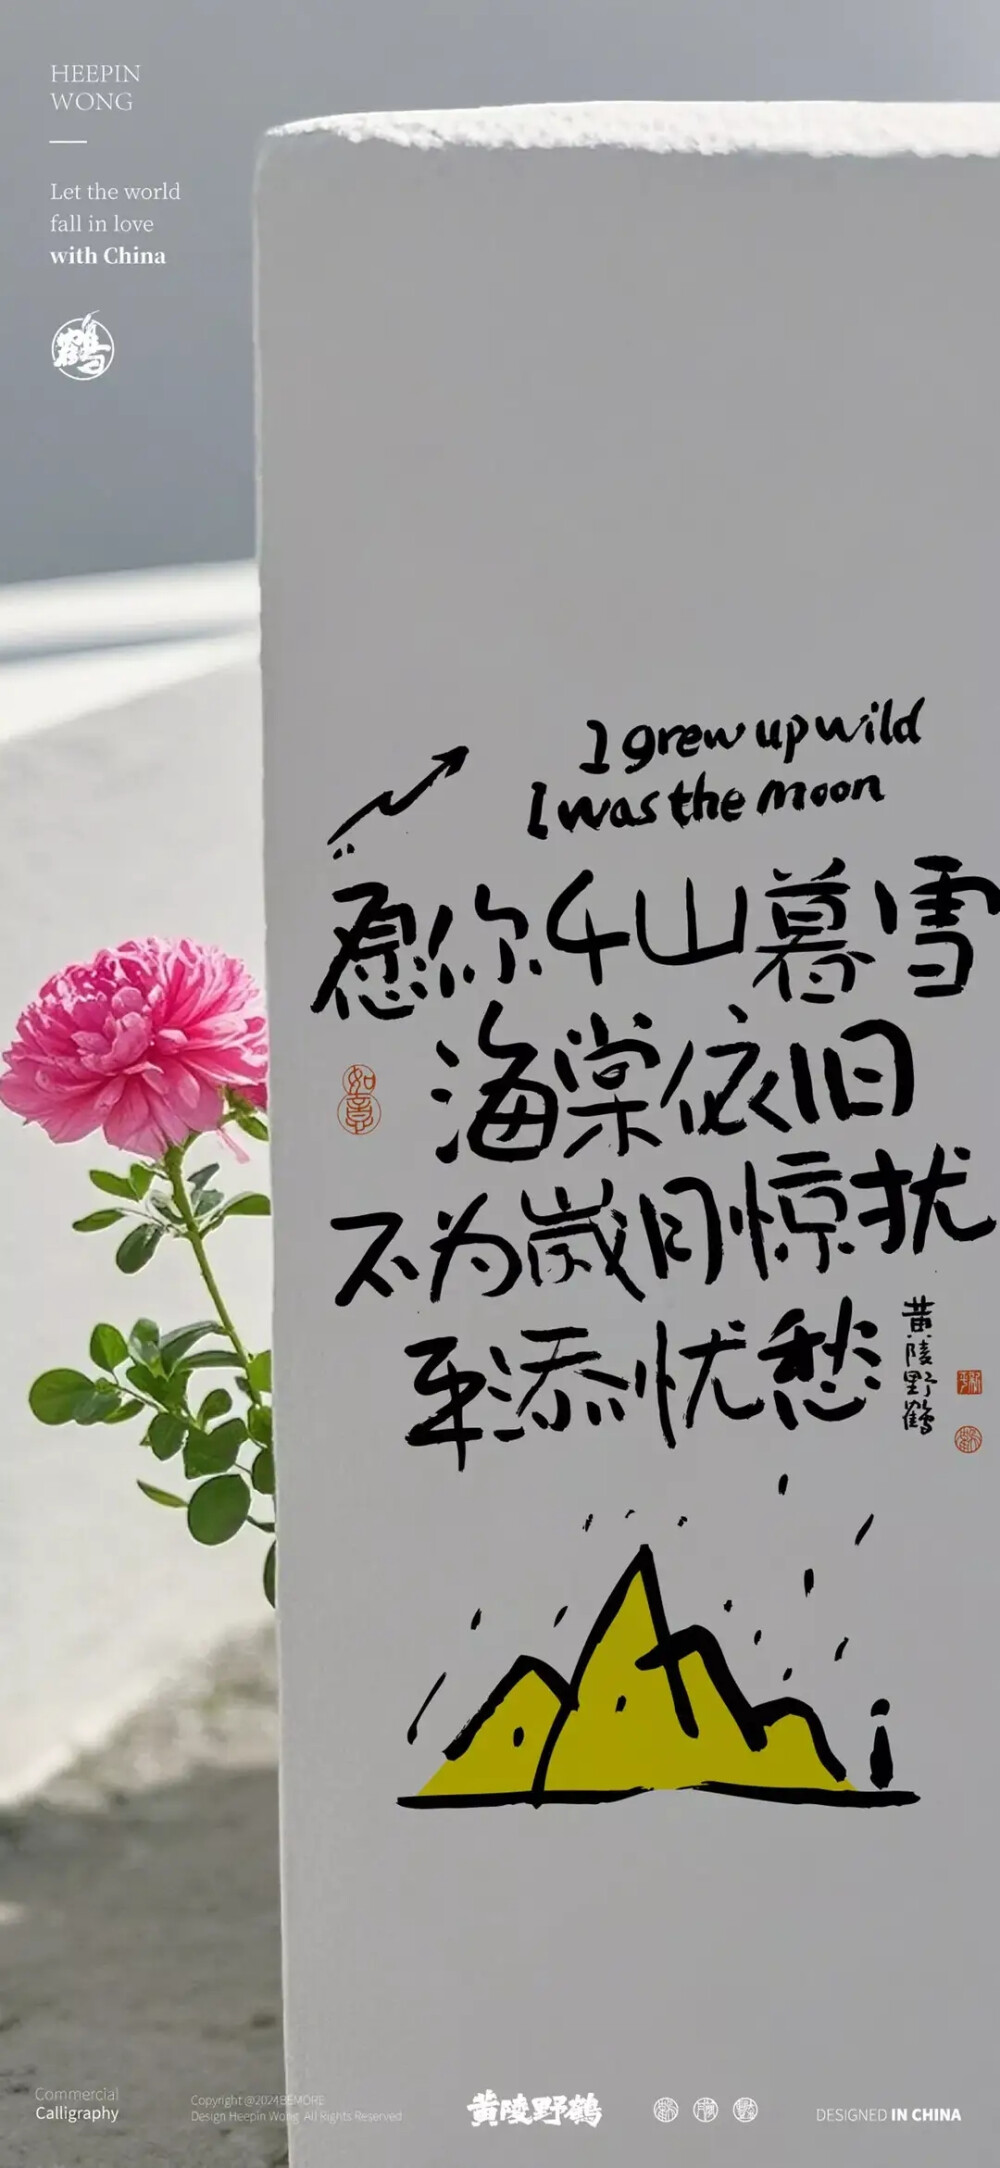 HEEPIN
WONG
Let the world
fall in love
with China
鹤
I grew up wild
I was the moon
愿你千山暮雪
海棠依旧
不为岁月惊扰
平添忧愁
如意
黄陵野鹤
Commercial
Calligraphy
Copyright @2024BEMORE
Design Heepin Wong All Rights Reserved
黄陵野鹤
DESIGNED IN CHINA